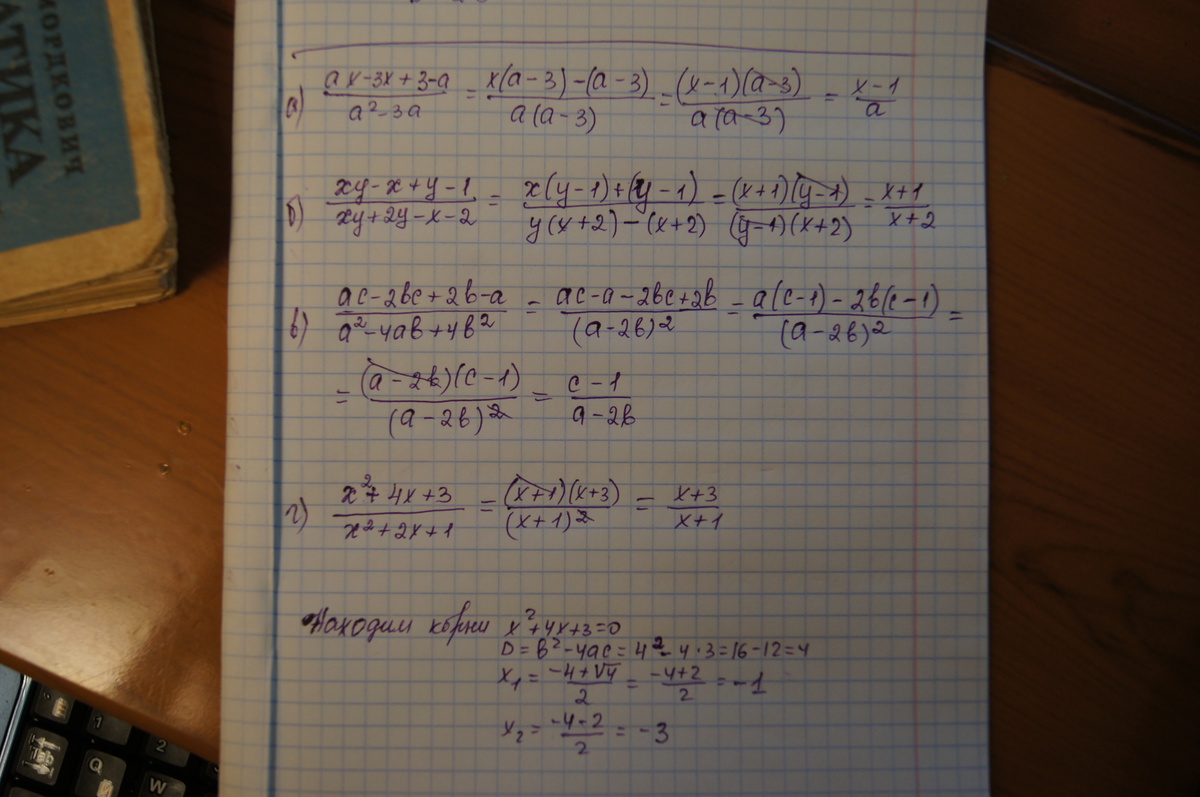 МОРДКОВИЧ
АТИКА
а) (ax-3x+3-a)/(a²-3a) = (x(a-3)-(a-3))/(a(a-3)) = ((x-1)(a-3))/(a(a-3)) = (x-1)/a
б) (xy-x+y-1)/(xy+2y-x-2) = (x(y-1)+(y-1))/(y(x+2)-(x+2)) = ((x+1)(y-1))/((y-1)(x+2)) = (x+1)/(x+2)
в) (ac-2bc+2b-a)/(a²-4ab+4b²) = (ac-a-2bc+2b)/((a-2b)²) = (a(c-1)-2b(c-1))/((a-2b)²) =
= ((a-2b)(c-1))/((a-2b)²) = (c-1)/(a-2b)
г) (x²+4x+3)/(x²+2x+1) = ((x+1)(x+3))/((x+1)²) = (x+3)/(x+1)
Находим корни x²+4x+3=0
D=b²-4ac=4²-4·3=16-12=4
x₁=(-4+√4)/2=(-4+2)/2=-1
x₂=(-4-2)/2=-3
1
2
Q
W